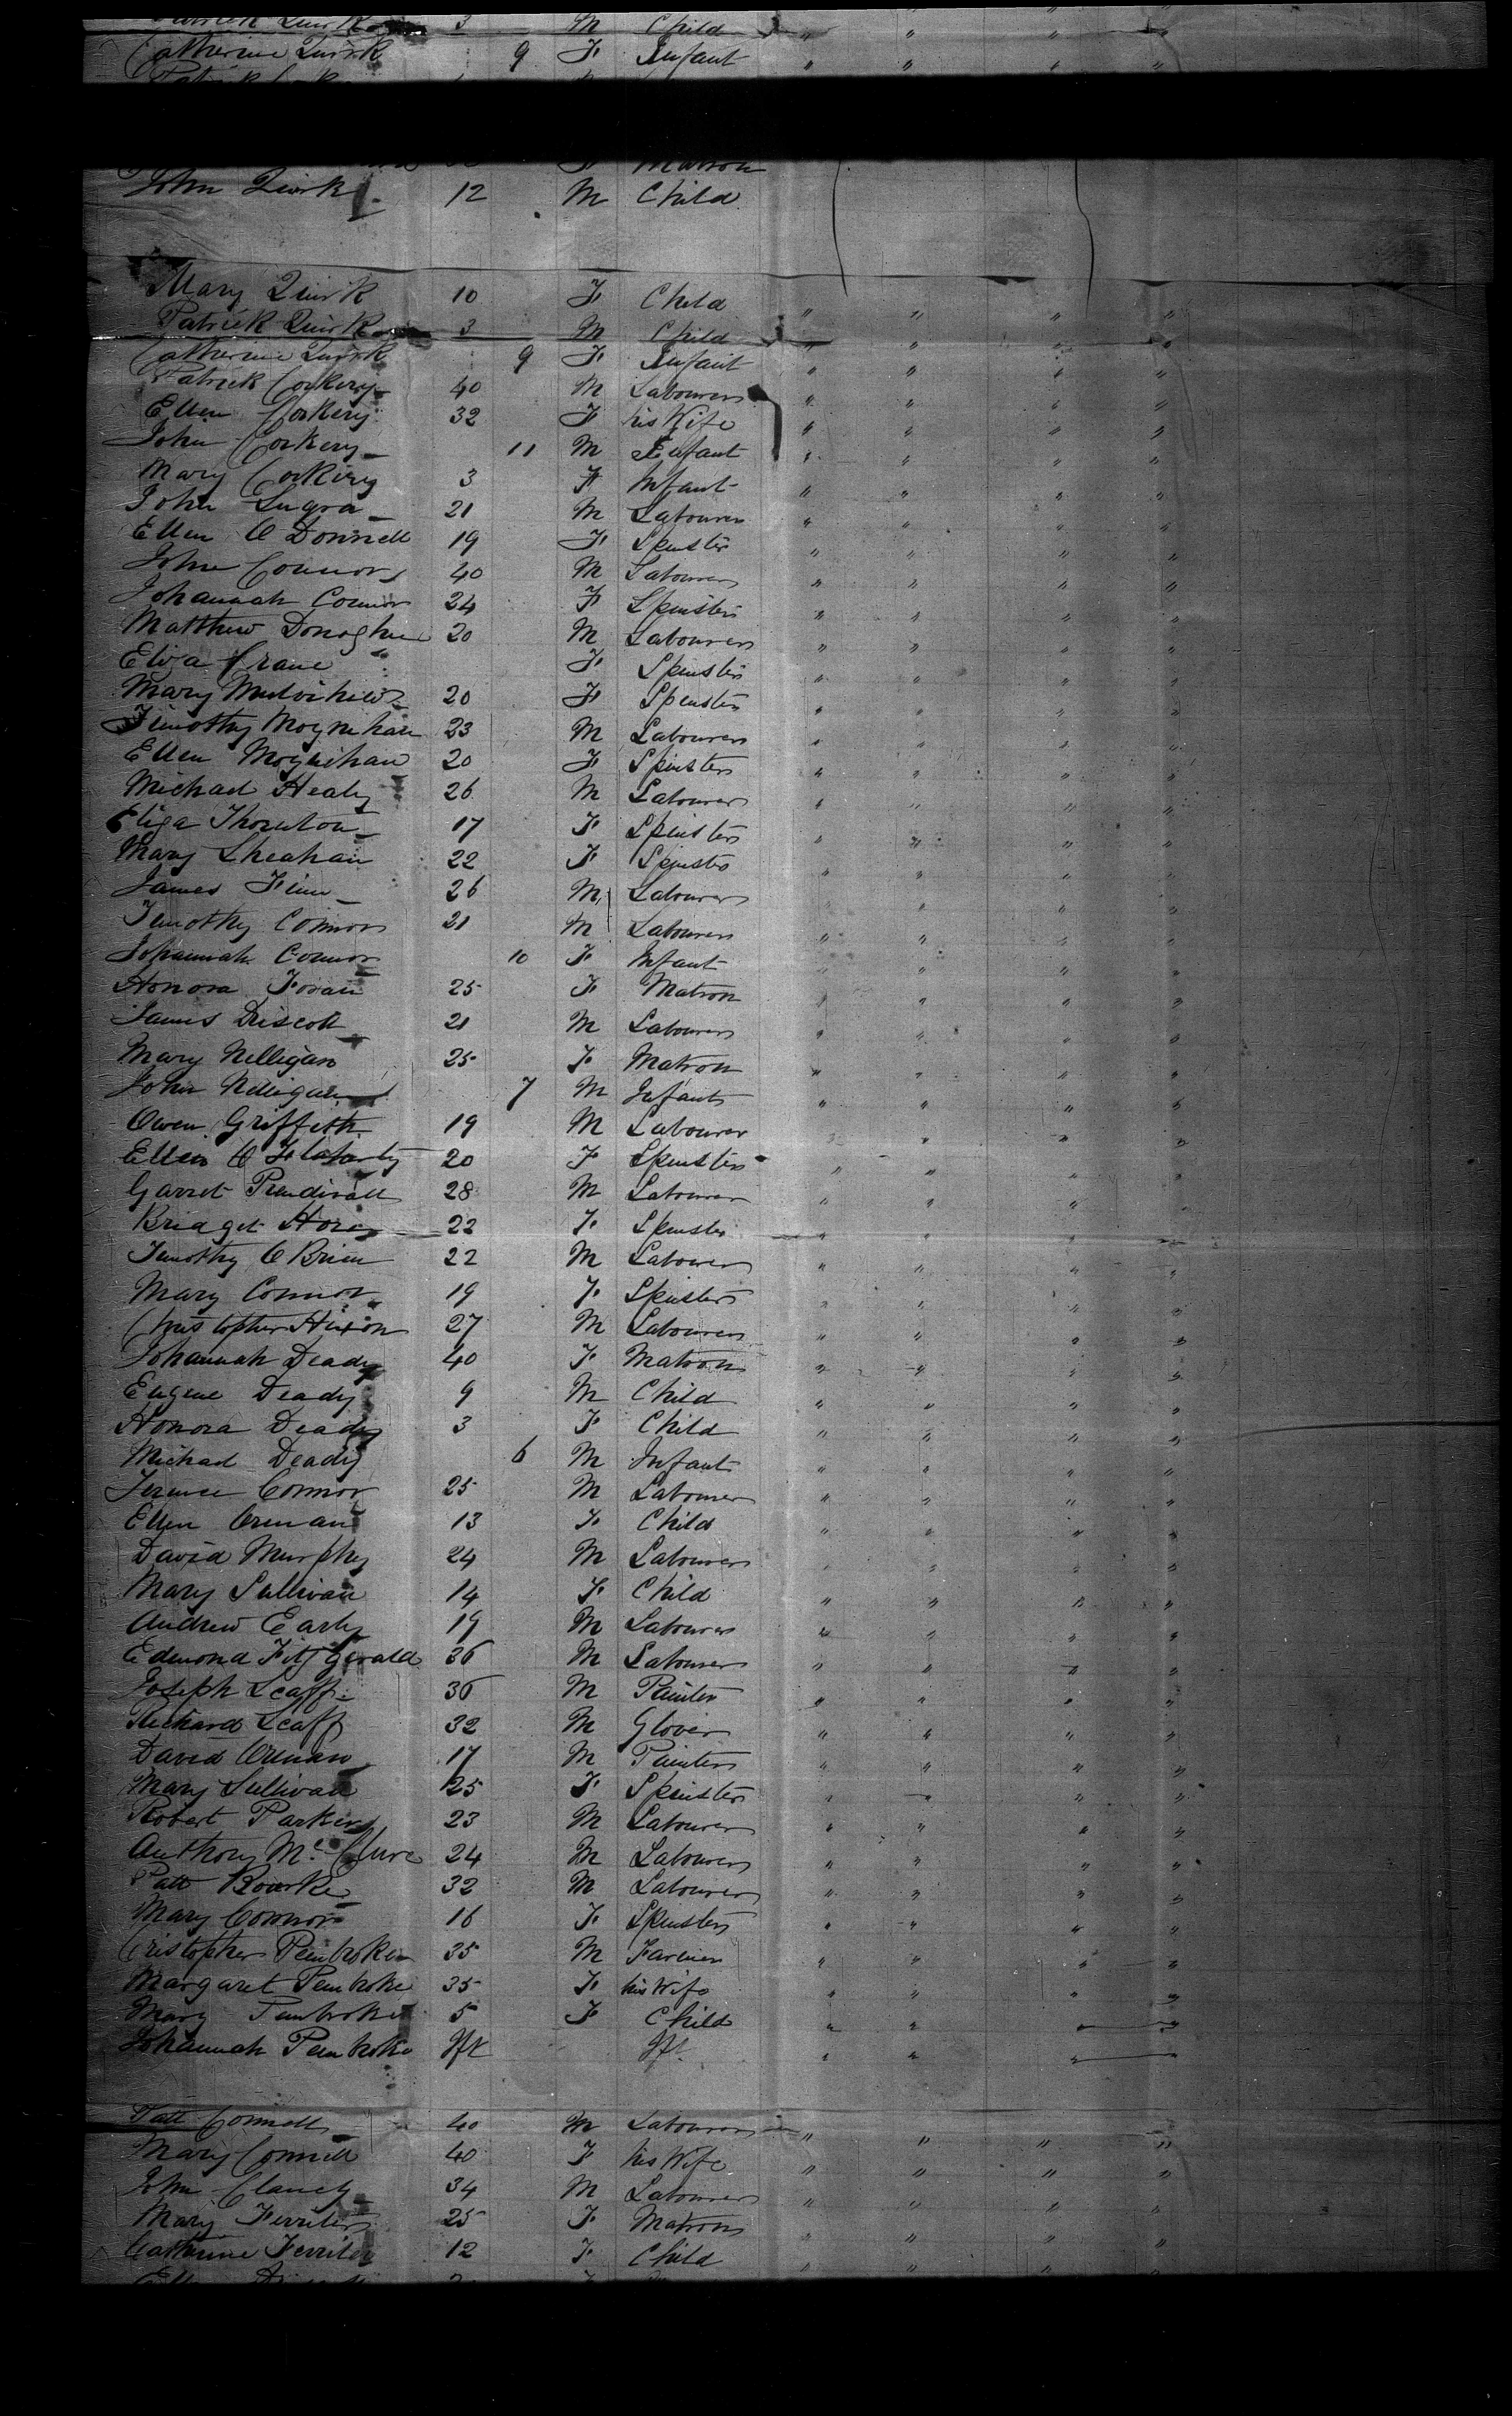 Patrick Quirk 3 M Child " " " "
Catherine Quirk 9 F Infant " " " "
Matron
John Quirk 12 M Child
Mary Quirk 10 F Child " " " "
Patrick Quirk 3 M Child " " " "
Catherine Quirk 9 F Infant " " " "
Patrick Corkery 40 M Labourer " " " "
Ellen Corkery 32 F his Wife " " " "
John Corkery 11 M Infant " " " "
Mary Corkery 3 F Infant " " " "
John 21 M Labourer " " " "
Ellen O Donnell 19 F Spinster " " " "
John Connor 40 M Labourer " " " "
Johannah Connor 24 F Spinster " " " "
Matthew Donoghue 20 M Labourer " " " "
Eliza Crane " F Spinster " " " "
Mary 20 F Spinster " " " "
Timothy Moynihan 23 M Labourer " " " "
Ellen Moynihan 20 F Spinster " " " "
Michael Healy 26 M Labourer " " " "
Eliza Thornton 17 F Spinster " " " "
Mary Sheahan 22 F Spinster " " " "
James Finn 26 M Labourer " " " "
Timothy Connor 21 M Labourer " " " "
Johannah Connor 10 F Infant " " " "
Honora Foran 25 F Matron " " " "
James Driscoll 21 M Labourer " " " "
Mary Nelligan 25 F Matron " " " "
John Nelligan 7 M Infant " " " "
Owen Griffeth 19 M Labourer " " " "
Ellen O Flaharty 20 F Spinster " " " "
Garret Prendivall 28 M Labourer " " " "
Bridget Hore 22 F Spinster " " " "
Timothy O Brien 22 M Labourer " " " "
Mary Connor 19 F Spinster " " " "
Christopher Hixon 27 M Labourer " " " "
Johannah Deady 40 F Matron " " " "
Eugene Deady 9 M Child " " " "
Honora Deady 3 F Child " " " "
Michael Deady 6 M Infant " " " "
Terence Connor 25 M Labourer " " " "
Ellen Crenan 13 F Child " " " "
David Murphy 24 M Labourer " " " "
Mary Sullivan 14 F Child " " " "
Andrew Early 19 M Labourer " " " "
Edmond Fitzgerald 36 M Labourer " " " "
Joseph Scaff 36 M Painter " " " "
Richard Scaff 32 M Glover " " " "
David Crenan 17 M Painter " " " "
Mary Sullivan 25 F Spinster " " " "
Robert Parker 23 M Labourer " " " "
Anthony McClure 24 M Labourer " " " "
Patt Bourke 32 M Labourer " " " "
Mary Connor 16 F Spinster " " " "
Cristopher Pembroke 35 M Farmer " " " "
Margaret Pembroke 35 F his Wife " " " "
Mary Pembroke 5 F Child " " " "
Johannah Pembroke Inft Inft " " " "
Patt Connell 40 M Labourer " " " "
Mary Connell 40 F his Wife " " " "
John Clancy 34 M Labourer " " " "
Mary Ferriter 25 F Matron " " " "
Catherine Ferriter 12 F Child " " " "